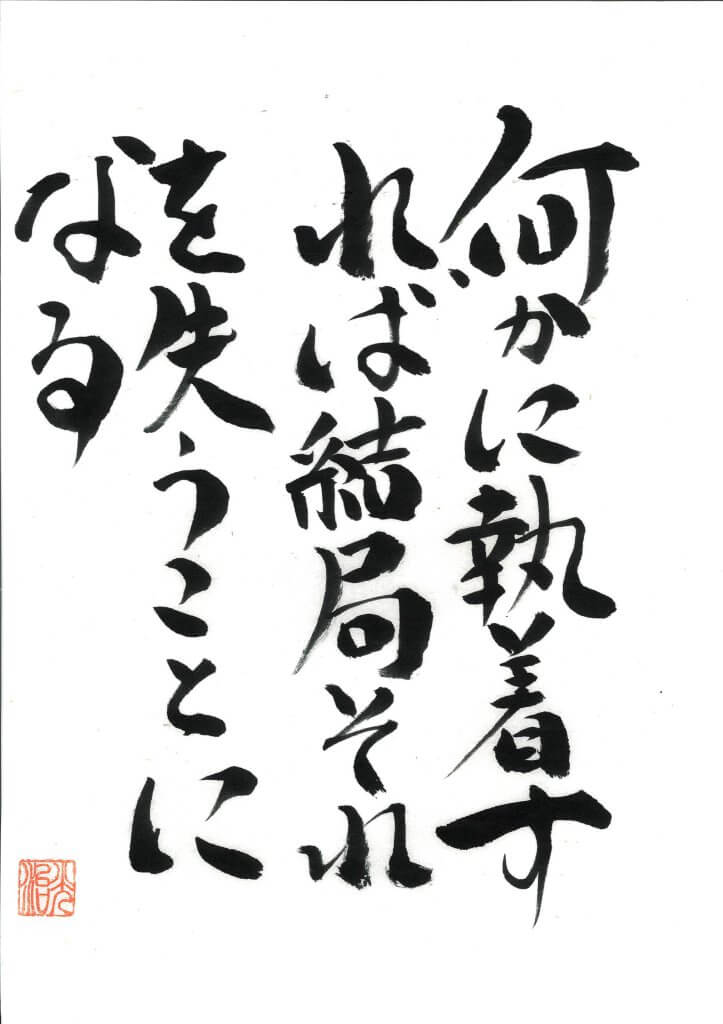 何かに執着す
れば結局それ
を失うことに
なる